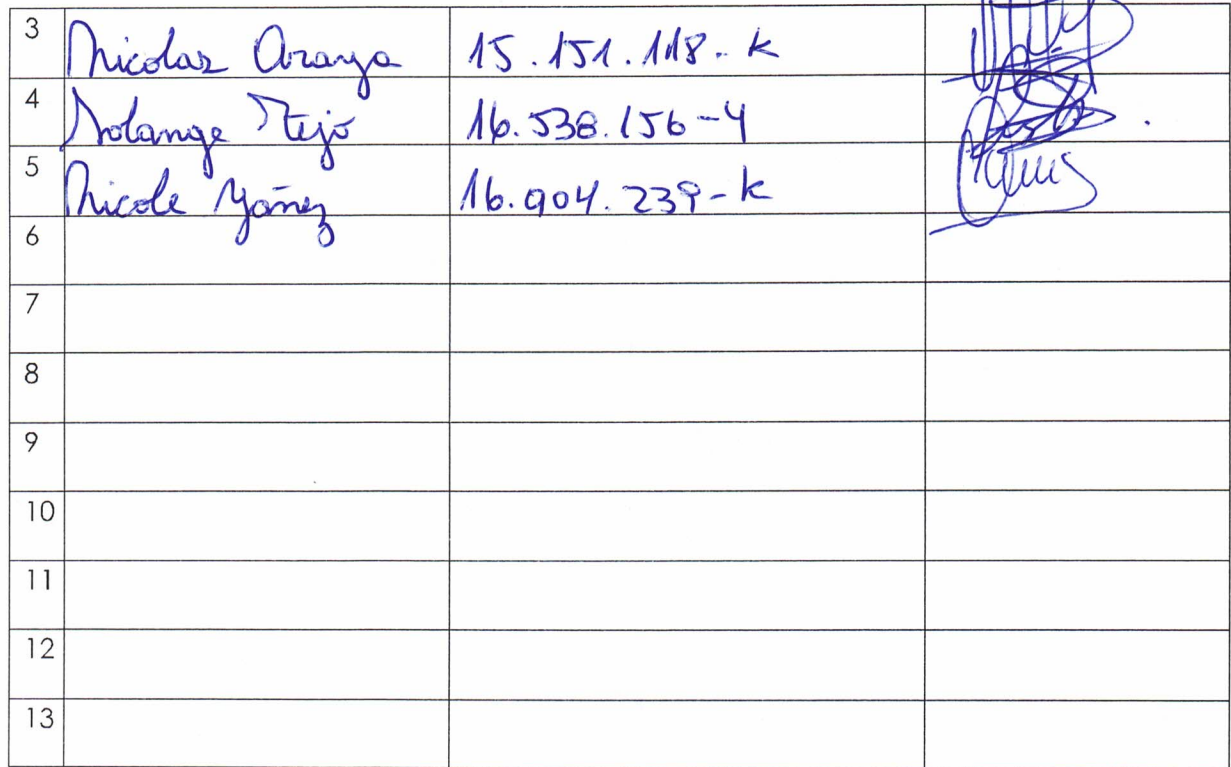 3 Nicolas Araya 15.151.118-k
4 Solange Tejo 16.538.156-4
5 Nicole Yáñez 16.904.239-k
6
7
8
9
10
11
12
13